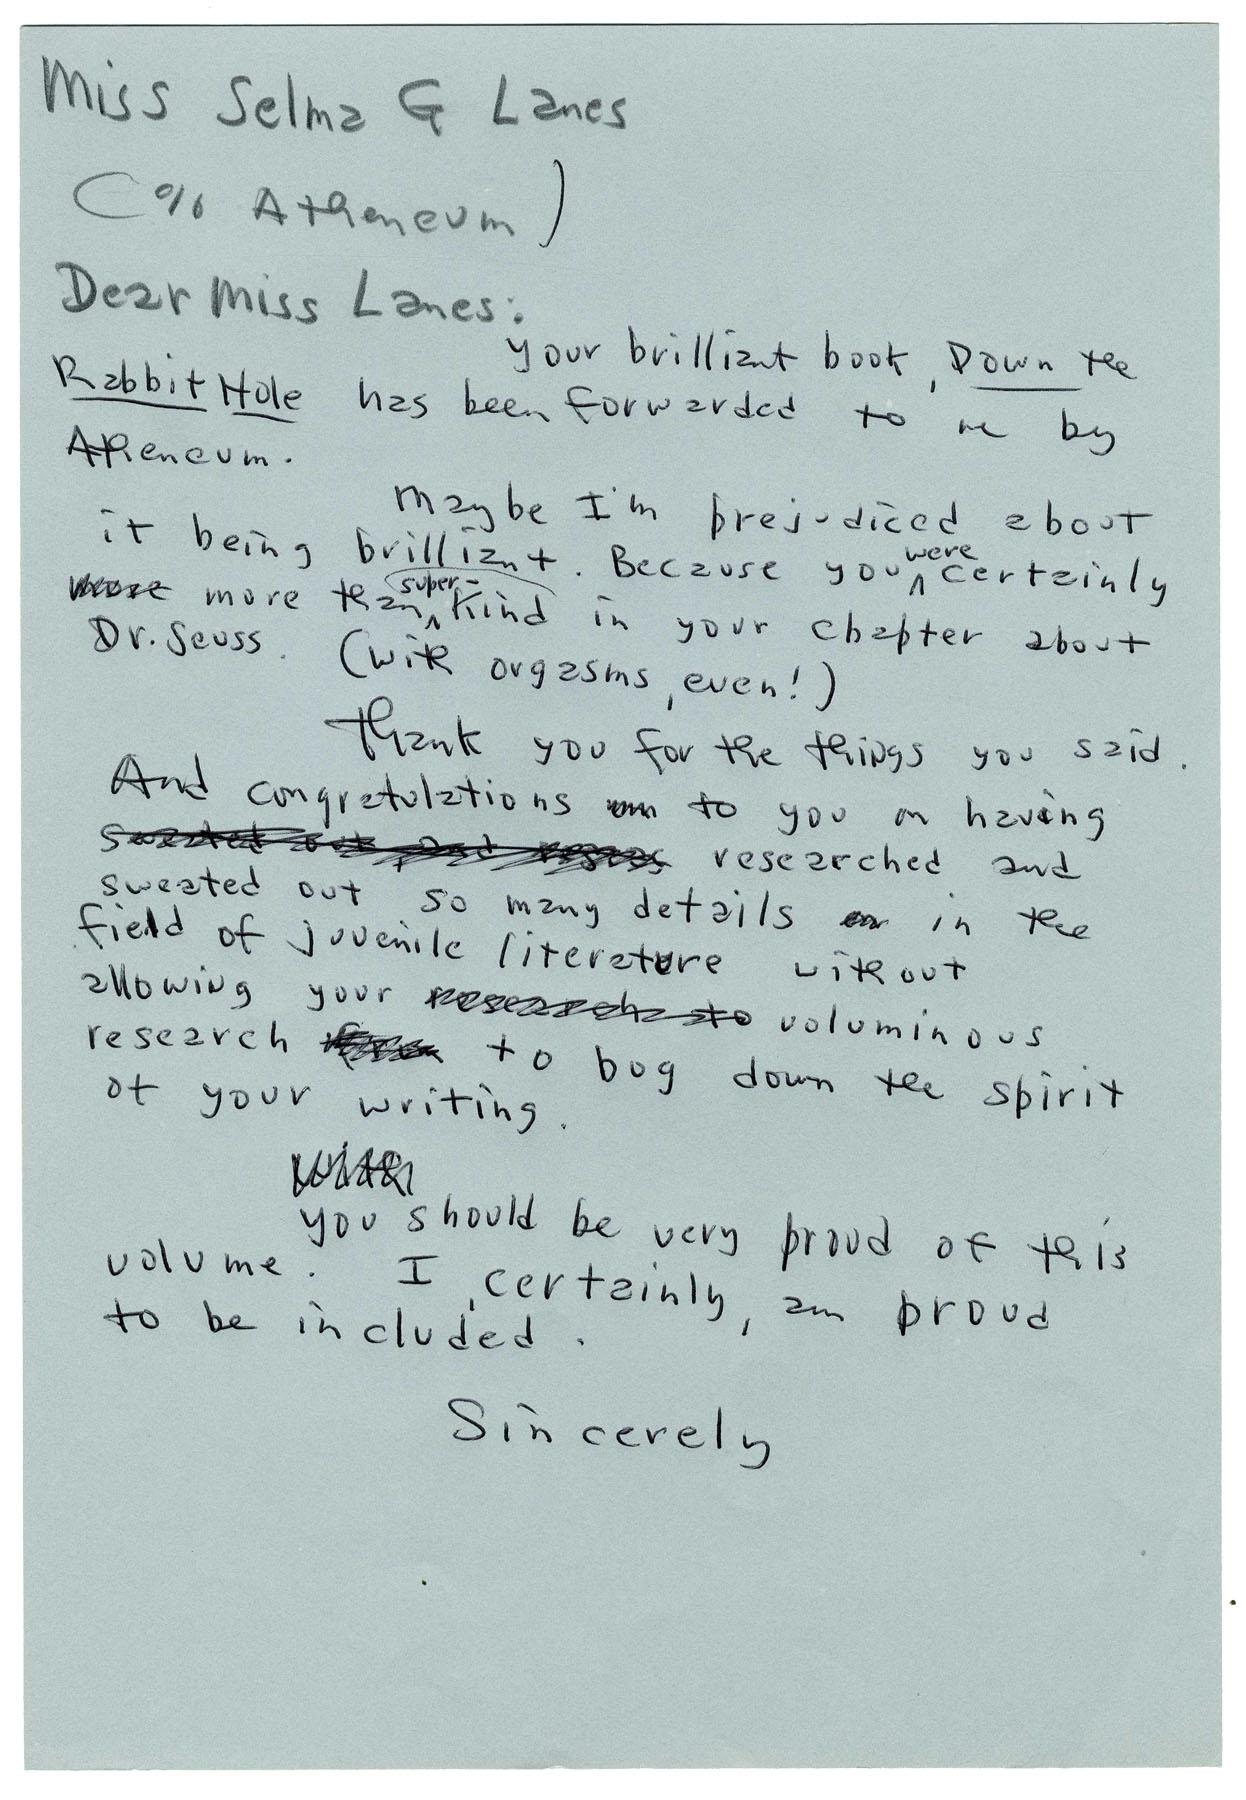 Miss Selma G Lanes
(% Atheneum)
Dear Miss Lanes:
your brilliant book, Down the
Rabbit Hole has been forwarded to me by
Atheneum.
Maybe I'm prejudiced about
it being brilliant. Because you were certainly
more more than super-kind in your chapter about
Dr. Seuss. (with orgasms, even!)
Thank you for the things you said.
And congratulations to you on having
sweated out and researched and
sweated out so many details on in the
field of juvenile literature without
allowing your research to voluminous
research to bog down the spirit
of your writing.
With
you should be very proud of this
volume. I, certainly, am proud
to be included.
Sincerely